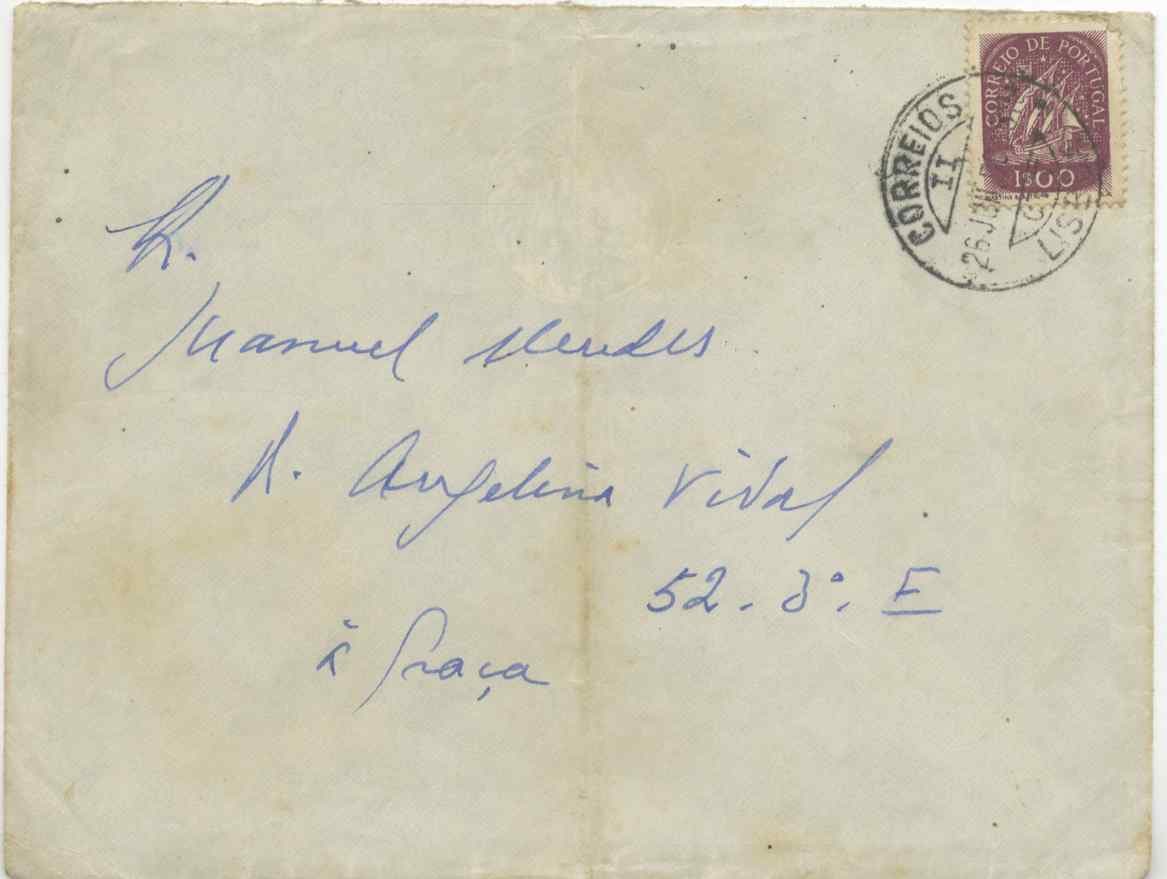 CORREIO DE PORTUGAL
1$00
CORREIOS
II
26 JUN
LISB
R.
Manuel Mendes
R. Angelina Vidal
52 . 3º . E
à Graça